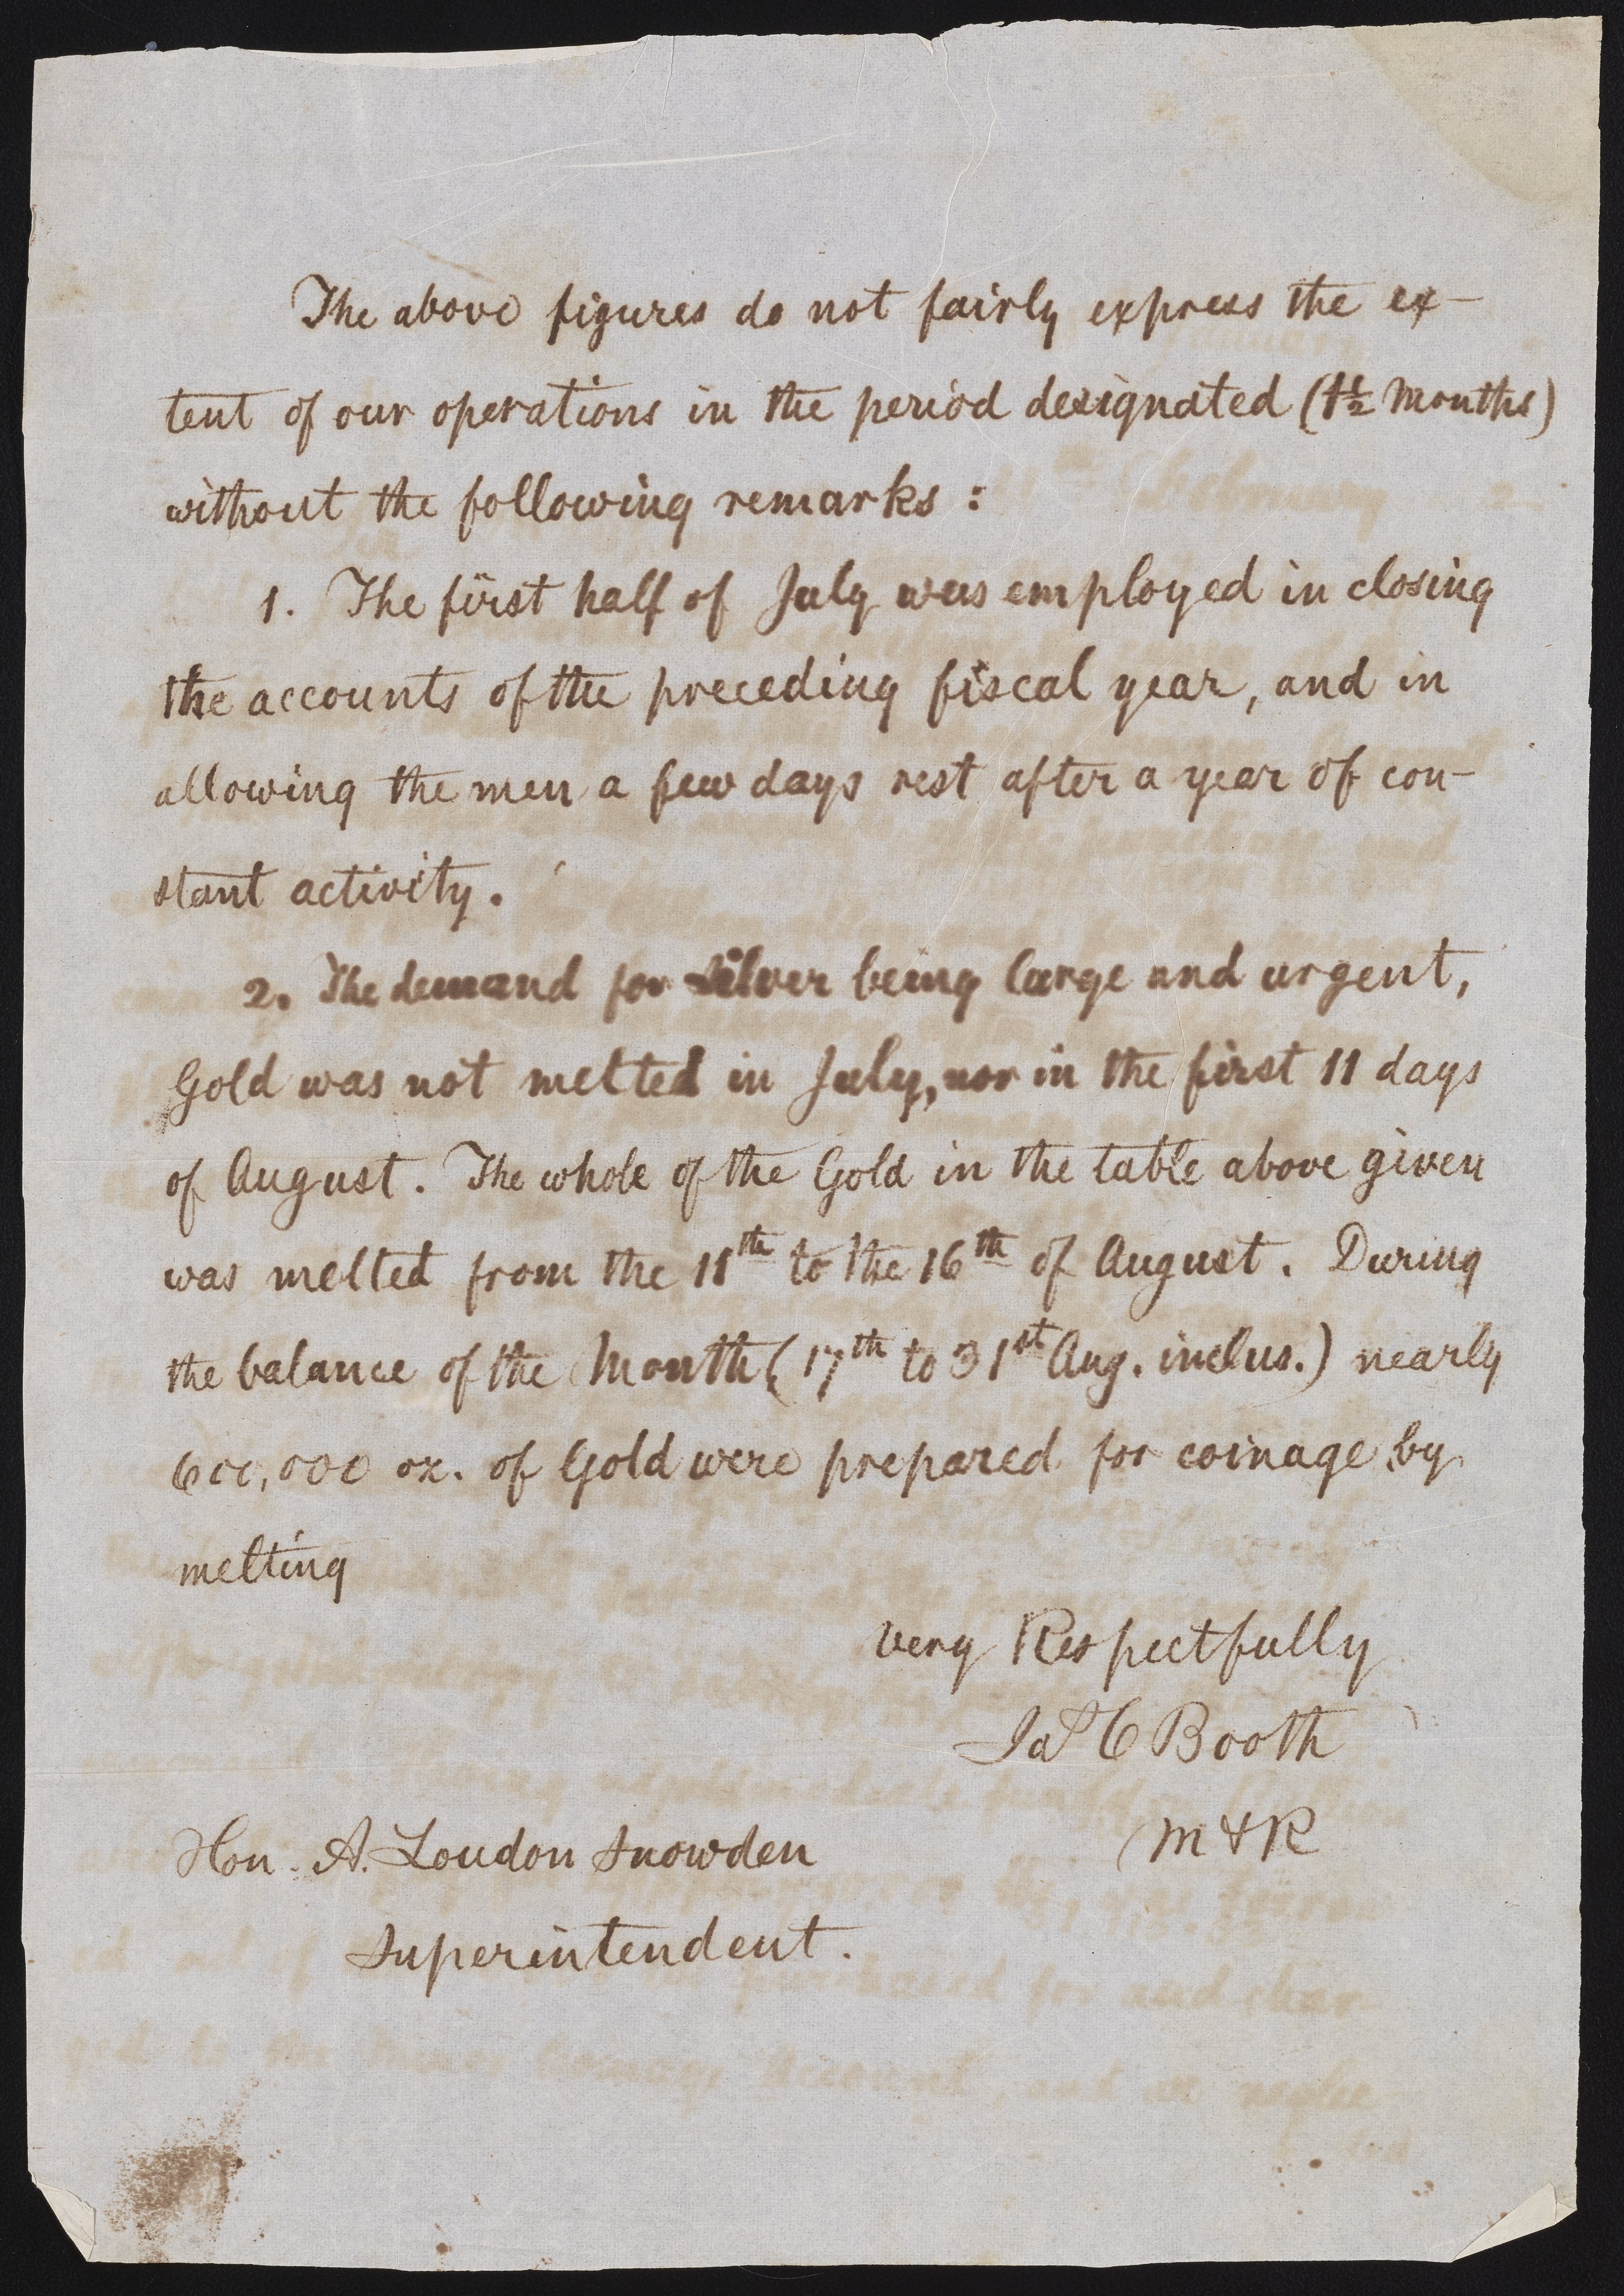 The above figures do not fairly express the ex-
tent of our operations in the period designated (1½ Months)
without the following remarks:
1. The first half of July was employed in closing
the accounts of the preceding fiscal year, and in
allowing the men a few days rest after a year of con-
stant activity.
2. The demand for silver being large and urgent,
Gold was not melted in July, nor in the first 11 days
of August. The whole of the Gold in the table above given
was melted from the 11th to the 16th of August. During
the balance of the Month (17th to 31st Aug. inclus.) nearly
600,000 oz. of Gold were prepared for coinage by
melting
Very Respectfully
Jas C Booth
M & R
Hon. A. Loudon Snowden
Superintendent.